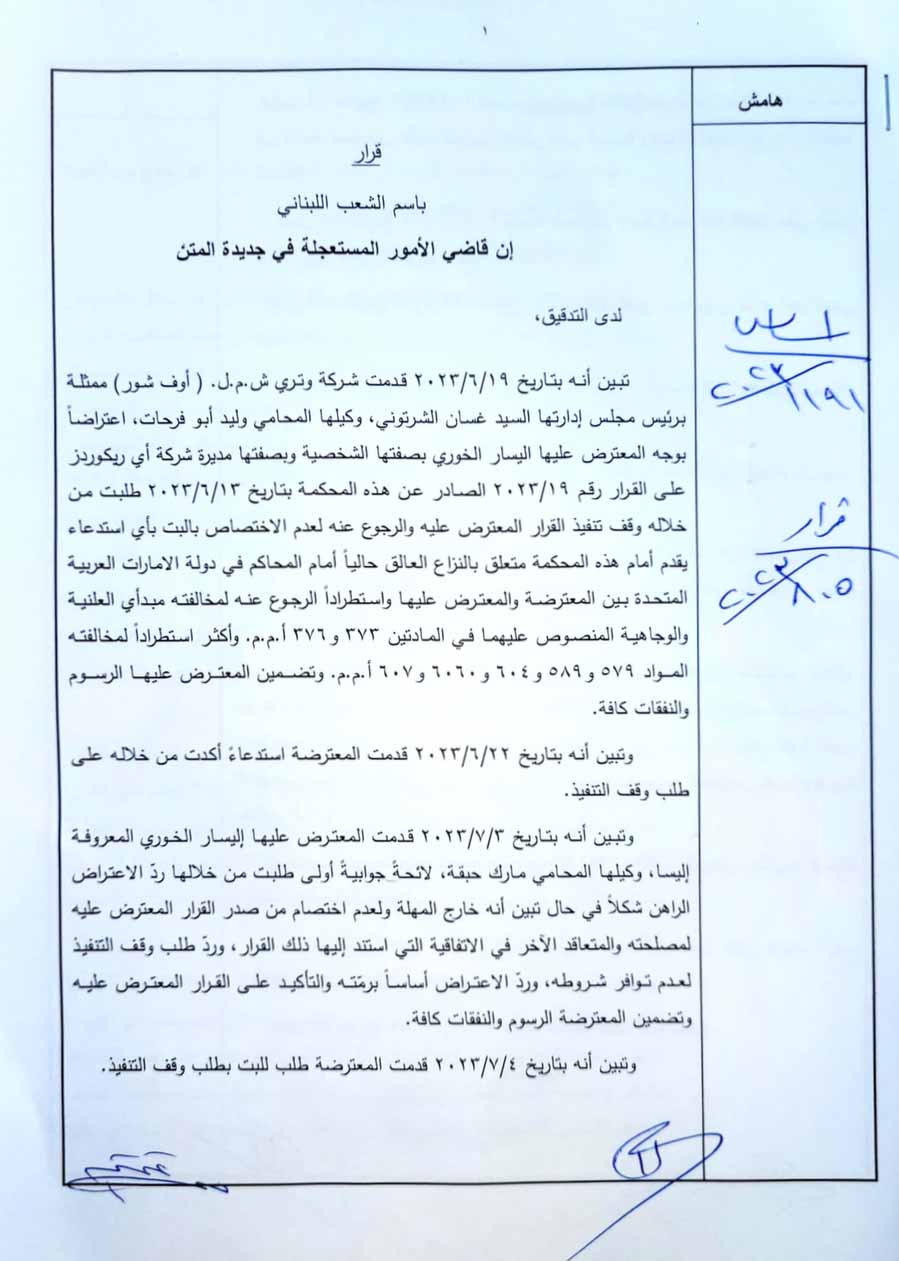 ١
هامش
قرار
باسم الشعب اللبناني
إن قاضي الأمور المستعجلة في جديدة المتن
لدى التدقيق،
تبين أنه بتاريخ ٢٠٢٣/٦/١٩ قدمت شركة وتري ش.م.ل. ( أوف شور) ممثلة
برئيس مجلس إدارتها السيد غسان الشرتوني، وكيلها المحامي وليد أبو فرحات، اعتراضاً
بوجه المعترض عليها اليسار الخوري بصفتها الشخصية وبصفتها مديرة شركة أي ريكوردز
على القرار رقم ٢٠٢٣/١٩ الصادر عن هذه المحكمة بتاريخ ٢٠٢٣/٦/١٣ طلبت من
خلاله وقف تنفيذ القرار المعترض عليه والرجوع عنه لعدم الاختصاص بالبت بأي استدعاء
يقدم أمام هذه المحكمة متعلق بالنزاع العالق حالياً أمام المحاكم في دولة الامارات العربية
المتحدة بين المعترضة والمعترض عليها واستطراداً الرجوع عنه لمخالفته مبدأي العلنية
والوجاهية المنصوص عليهما في المادتين ٣٧٣ و ٣٧٦ أ.م.م. وأكثر استطراداً لمخالفته
المواد ٥٧٩ و ٥٨٩ و ٦٠٤ و ٦٠٦٠ و ٦٠٧ أ.م.م. وتضمين المعترض عليها الرسوم
والنفقات كافة.
وتبين أنه بتاريخ ٢٠٢٣/٦/٢٢ قدمت المعترضة استدعاءً أكدت من خلاله على
طلب وقف التنفيذ.
وتبين أنه بتاريخ ٢٠٢٣/٧/٣ قدمت المعترض عليها إليسار الخوري المعروفة
إليسا، وكيلها المحامي مارك حبقة، لائحةً جوابيةً أولى طلبت من خلالها ردّ الاعتراض
الراهن شكلاً في حال تبين أنه خارج المهلة ولعدم اختصام من صدر القرار المعترض عليه
لمصلحته والمتعاقد الآخر في الاتفاقية التي استند إليها ذلك القرار، وردّ طلب وقف التنفيذ
لعدم توافر شروطه، وردّ الاعتراض أساساً برمّته والتأكيد على القرار المعترض عليه
وتضمين المعترضة الرسوم والنفقات كافة.
وتبين أنه بتاريخ ٢٠٢٣/٧/٤ قدمت المعترضة طلب للبت بطلب وقف التنفيذ.
اساس
٢٠٢٣/١١٩١
قرار
٢٠٢٣/٨٠٥